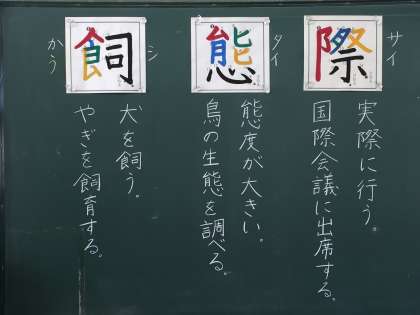 際
サイ
実際に行う。
国際会議に出席する。
態
タイ
態度が大きい。
鳥の生態を調べる。
飼
シ
かう
犬を飼う。
やぎを飼育する。